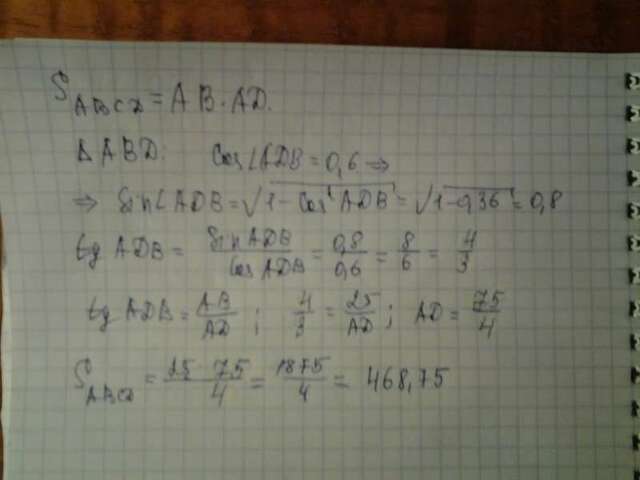 S ABCD = AB · AD.
Δ ABD: cos∠ADB = 0,6 ⇒
⇒ sin∠ADB = √1 - cos² ADB = √1 - 0,36 = 0,8
tg ADB = sin ADB / cos ADB = 0,8 / 0,6 = 8 / 6 = 4 / 3
tg ADB = AB / AD ; 4 / 3 = 25 / AD ; AD = 75 / 4
S ABCD = 25 · 75 / 4 = 1875 / 4 = 468,75